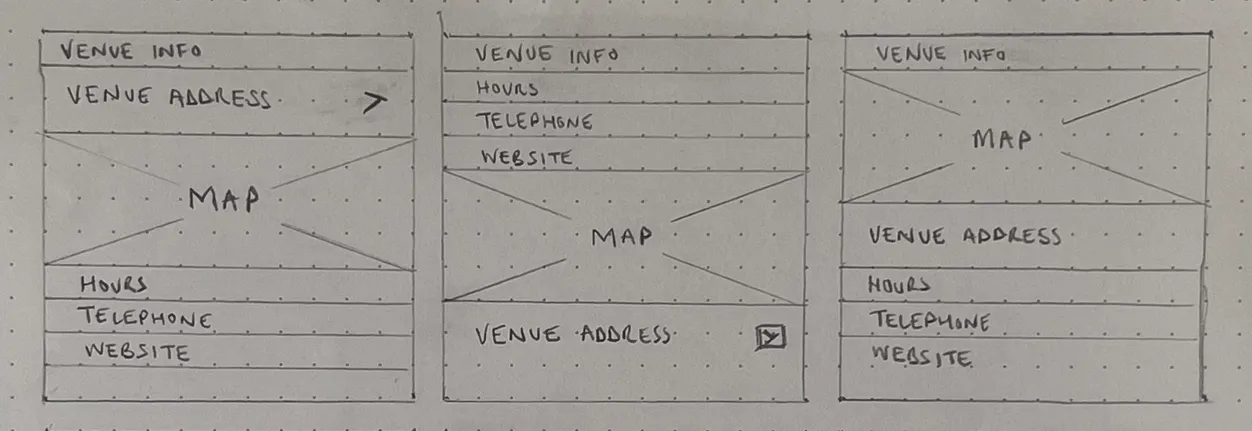 VENUE INFO
VENUE ADDRESS
MAP
HOURS
TELEPHONE
WEBSITE
VENUE INFO
HOURS
TELEPHONE
WEBSITE
MAP
VENUE ADDRESS
VENUE INFO
MAP
VENUE ADDRESS
HOURS
TELEPHONE
WEBSITE